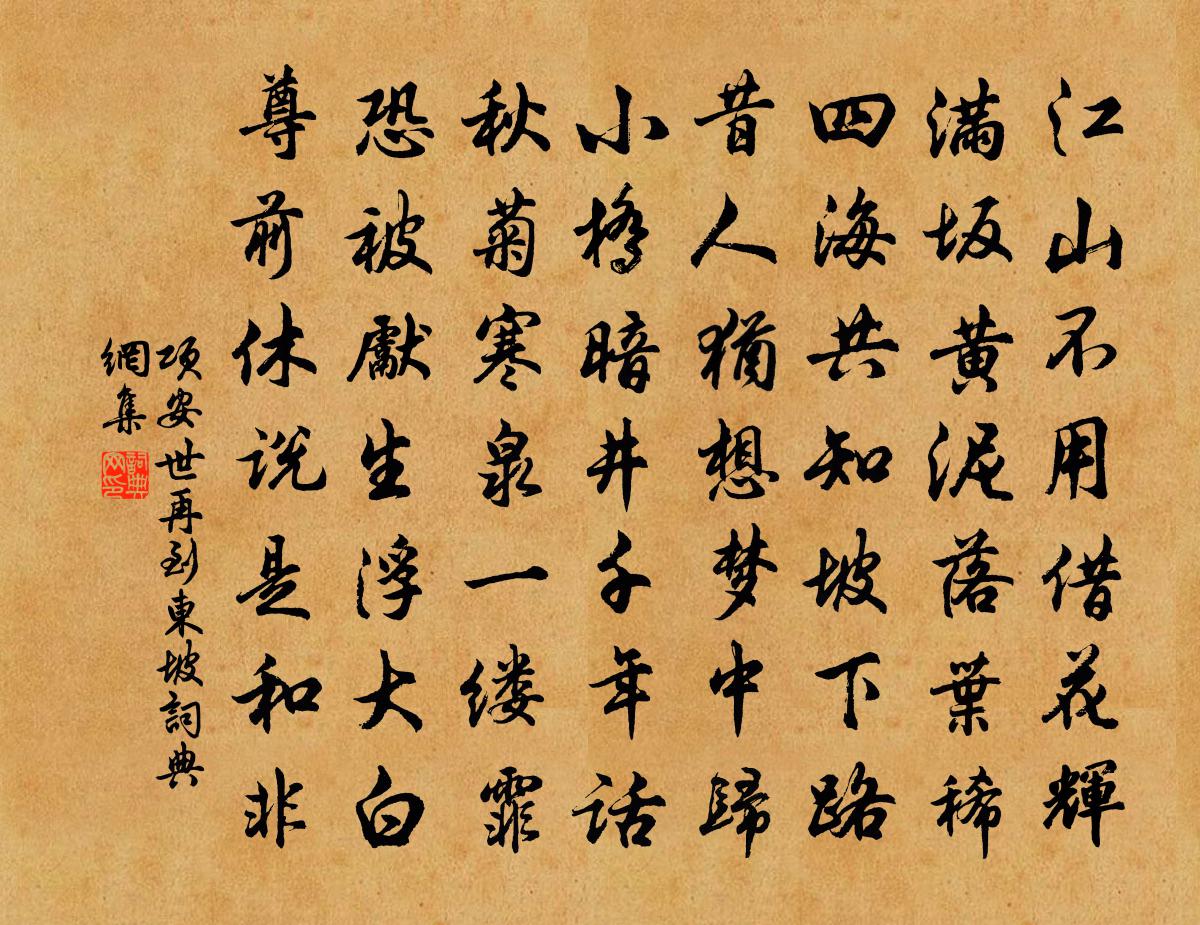 江山不用借花輝
满坂黄泥落葉稀
四海共知坡下路
昔人猶想梦中歸
小橋暗井千年话
秋菊寒泉一缕霏
恐被獻生浮大白
尊前休说是和非
項安世再到東坡詞典
網集
詞典网印